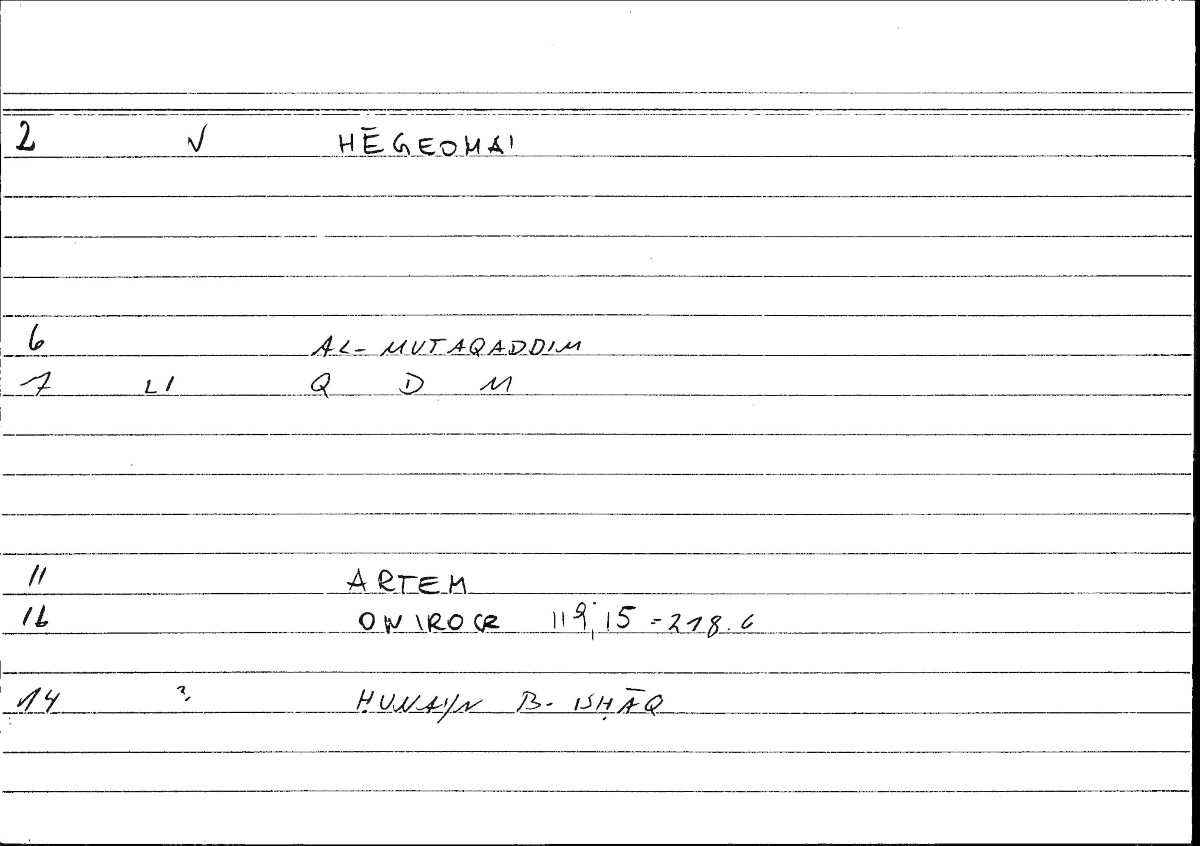 2 V HĒGEOMAI
6 AL-MUTAQADDIM
7 LI Q D M
11 ARTEM
16 ONIROCR 119,15 = 218.6
14 ? ḤUNAYN B. ISḤĀQ